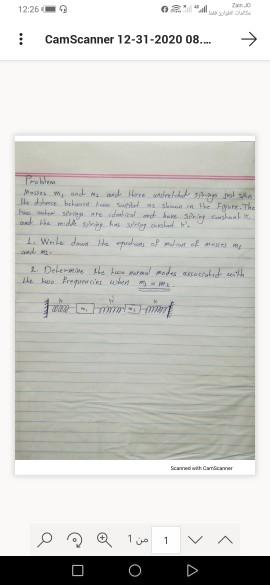 12:26
Zain JO
مكالمات الطوارئ فقط
CamScanner 12-31-2020 08....
Problem
Masses m₁ and m₂ and three unstretched springs just span
the distance between two supports as shown in the Figure. The
two outer springs are identical and have spring constant k,
and the middle spring has spring constant k'.
1. Write down the equations of motion of masses m₁
and m₂.
2. Determine the two normal modes associated with
the two frequencies when m₁ = m₂
k k' k
m₁ m₂
Scanned with CamScanner
1 من 1